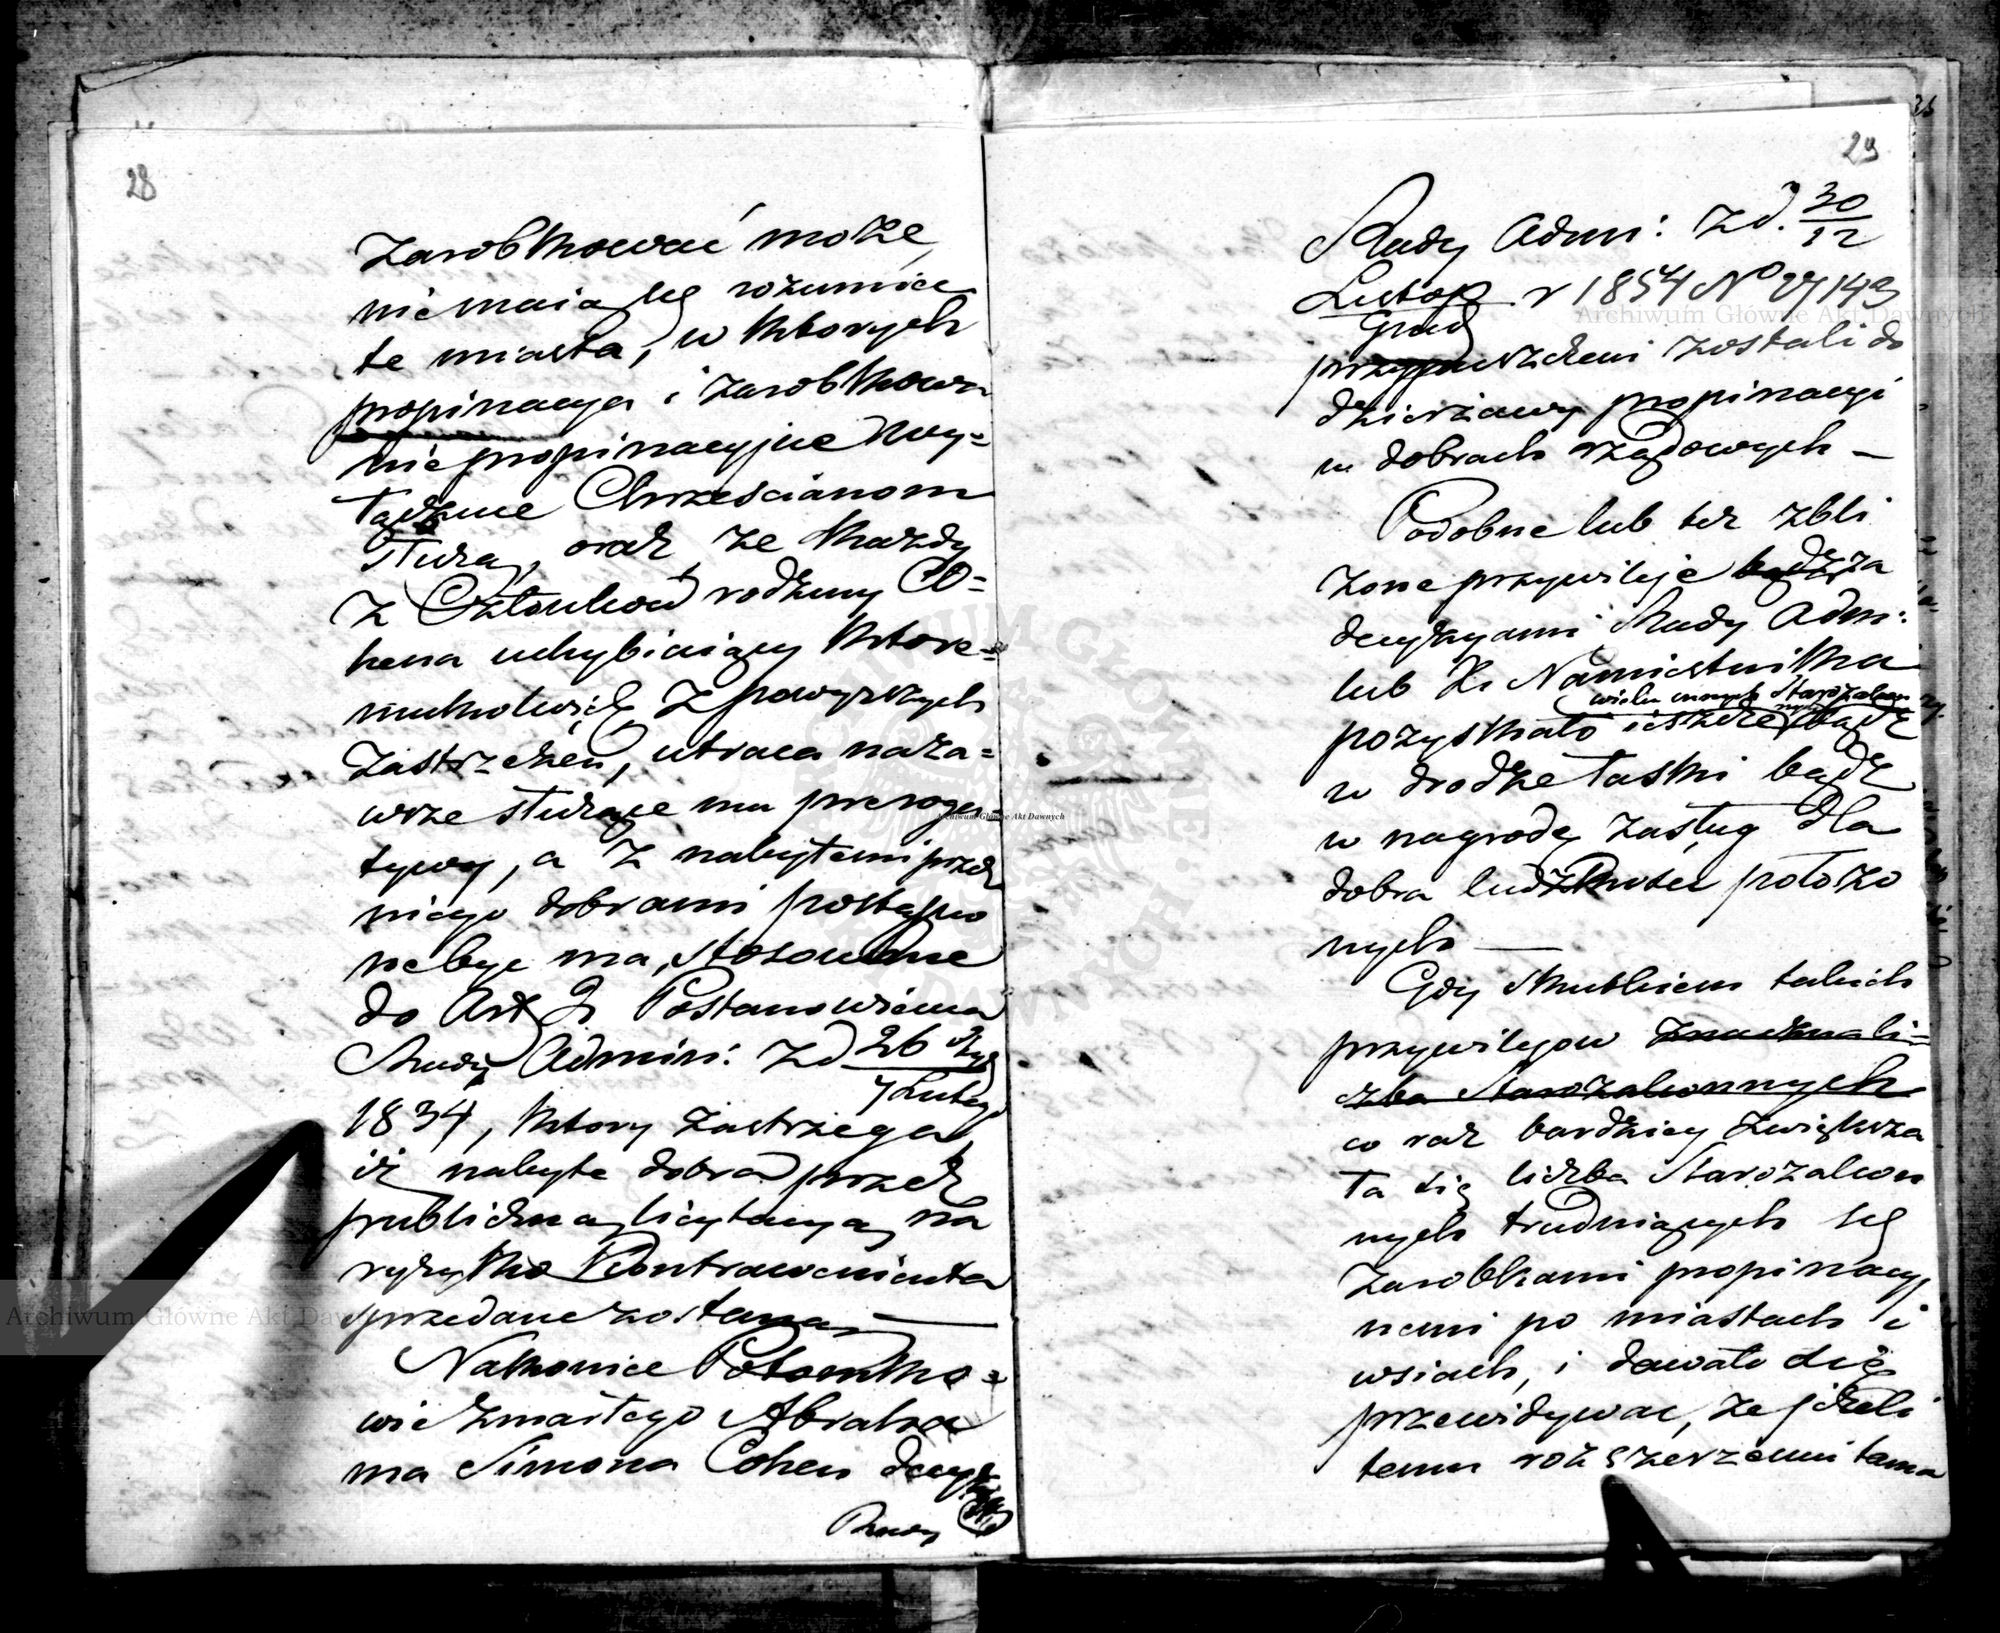 28
zarobkować może,
nie maią się rozumieć
te miasta, w których
propinacya i zarobkowa
nie propinacyjne wy=
łącznie Chrześcianom
służą, oraz że każdy
z Członków rodziny Co=
hena uchybiaiący które=
mukolwiek z powyższych
zastrzeżeń, utraca naza=
wsze służące mu preroga=
tywy, a z nabytemi przez
niego dobrami postąpio
ne być ma, stosownie
do Art 2 Postanowienia
Rady Admini: z d 26 Sty
7 Lutego
1834, który zastrzega
iż nabyte dobra przez
publiczną licytacyą na
ryzyko Kontrawenienta
sprzedane zostaną —
Nakoniec Potomko=
wie zmarłego Abraha
ma Simona Cohen decyz
Rady
29
Rady Adm: z d. 30/12
Listop r 1854 No 27149
Grud
przypuszczeni zostali do
dzierżawy propinacyi
w dobrach rządowych —
Podobne lub też zbli
żone przywileje bądź za
decyzyami Rady Adm:
lub X. Namiestnika
wielu innych Starozakon
nych
pozyskało ieszcze bądź
w drodze łaski bądź
w nagrodę zasług dla
dobra ludzkości położo
nych —
Gdy skutkiem takich
przywilejow znaczna li=
czba Starozakonnych
co raz bardziey zwiększa
ła się liczba Starozakon
nych trudniących się
zarobkami propinacyj
nemi po miastach i
wsiach, i dawało się
przewidywać, że jeżeli
temu rozszerzeniu tama